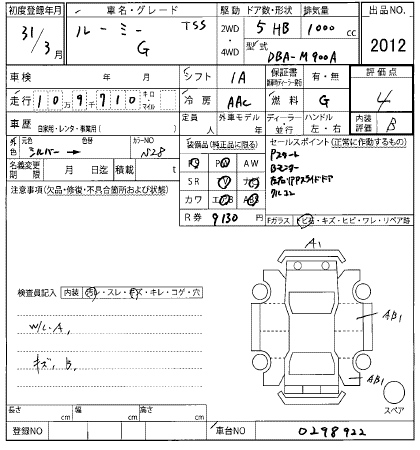 初度登録年月 車名・グレード 駆動 ドア数・形状 排気量 出品NO.
31/3月 ルーミー TSS G 2WD・4WD 5HB 1000cc 2012
型式 DBA-M900A
車検 年 月 シフト IA 保証書 有・無 評価点 4
走行 109710 キロ・マイル 冷房 AAC 燃料 G
車歴 自家用・レンタ・事業用( ) 定員 人 外車モデル 年 ディーラー・並行 ハンドル 左・右 内装評価 B
外色 元色 シルバー → 色替 カラーNO N28
装備品(純正品に限る) セールスポイント(正常に作動するもの)
名義変更期限 月 日迄 積載 t
AW Pスタート
SR Bモニター
カワ クルコン
R券 9130 円
注意事項(欠品・修復・不具合箇所および状態)
Fガラス ・キズ・ヒビ・ワレ・リペア跡
A1
検査員記入 内装 ・スレ・キズ・キレ・コゲ・穴
W/L.A,
キズ, B,
AB1
AB1
スペア
長さ cm 幅 cm 高さ cm
登録NO 車台NO 0298922